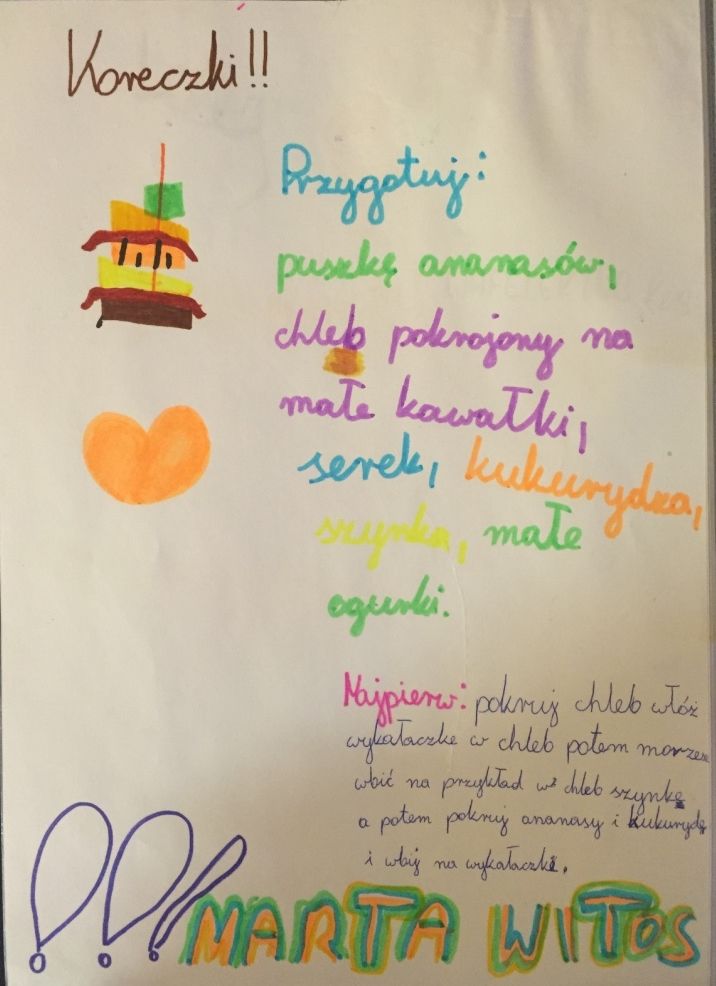 Koreczki!!
Przygotuj:
puszkę ananasów,
chleb pokrojony na
małe kawałki,
serek, kukurydza,
szynka, małe
ogurki.
Najpierw: pokruj chleb włóż
wykałaczke w chleb potem morzesz
wbić na przykład w chleb szynkę
a potem pokruj ananasy i kukurydę
i wbij na wykałaczkę.
!!! MARTA WITOS